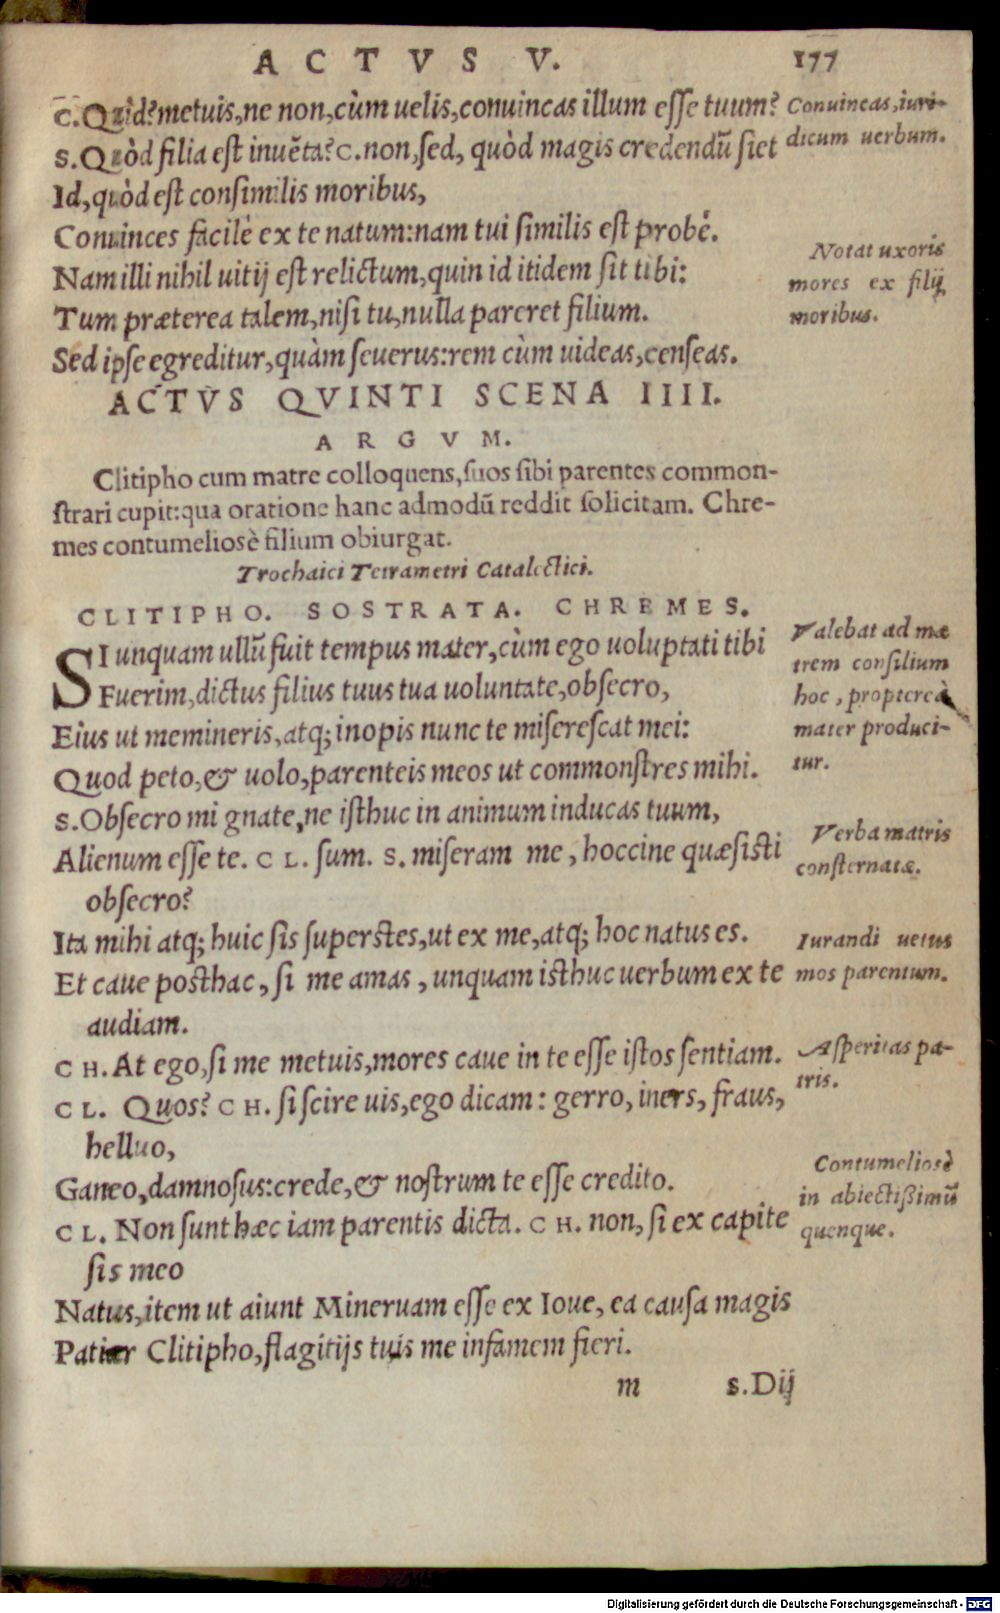 ACTVS V. 177
C. Quid? metuis, ne non, cùm uelis, conuincas illum esse tuum?
S. Quòd filia est inuēta? C. non, sed, quòd magis credendū siet
Id, quòd est consimilis moribus,
Conuinces facilè ex te natum: nam tui similis est probè.
Nam illi nihil uitij est relictum, quin id itidem sit tibi:
Tum præterea talem, nisi tu, nulla pareret filium.
Sed ipse egreditur, quàm seuerus: rem cùm uideas, censeas.
Conuincas, iuri-
dicum uerbum.
Notat uxoris
mores ex filij
moribus.
ACTVS QVINTI SCENA IIII.
ARGVM.
Clitipho cum matre colloquens, suos sibi parentes common-
strari cupit: qua oratione hanc admodū reddit solicitam. Chre-
mes contumeliosè filium obiurgat.
Trochaici Tetrametri Catalectici.
CLITIPHO. SOSTRATA. CHREMES.
SI unquam ullū fuit tempus mater, cùm ego uoluptati tibi
Fuerim, dictus filius tuus tua uoluntate, obsecro,
Eius ut memineris, atq; inopis nunc te miserescat mei:
Quod peto, & uolo, parenteis meos ut commonstres mihi.
S. Obsecro mi gnate, ne isthuc in animum inducas tuum,
Alienum esse te. CL. sum. S. miseram me, hoccine quæsisti
obsecro?
Ita mihi atq; huic sis superstes, ut ex me, atq; hoc natus es.
Et caue posthac, si me amas, unquam isthuc uerbum ex te
audiam.
CH. At ego, si me metuis, mores caue in te esse istos sentiam.
CL. Quos? CH. si scire uis, ego dicam: gerro, iners, fraus,
helluo,
Ganeo, damnosus: crede, & nostrum te esse credito.
CL. Non sunt hæc iam parentis dicta. CH. non, si ex capite
sis meo
Natus, item ut aiunt Mineruam esse ex Ioue, ea causa magis
Patiar Clitipho, flagitijs tuis me infamem fieri.
Valebat ad ma
trem consilium
hoc, propterea
mater produci-
tur.
Verba matris
consternatæ.
Iurandi uetus
mos parentum.
Asperitas pa-
tris.
Contumeliosè
in abiectißimū
quenque.
m S. Dij
Digitalisierung gefördert durch die Deutsche Forschungsgemeinschaft - DFG